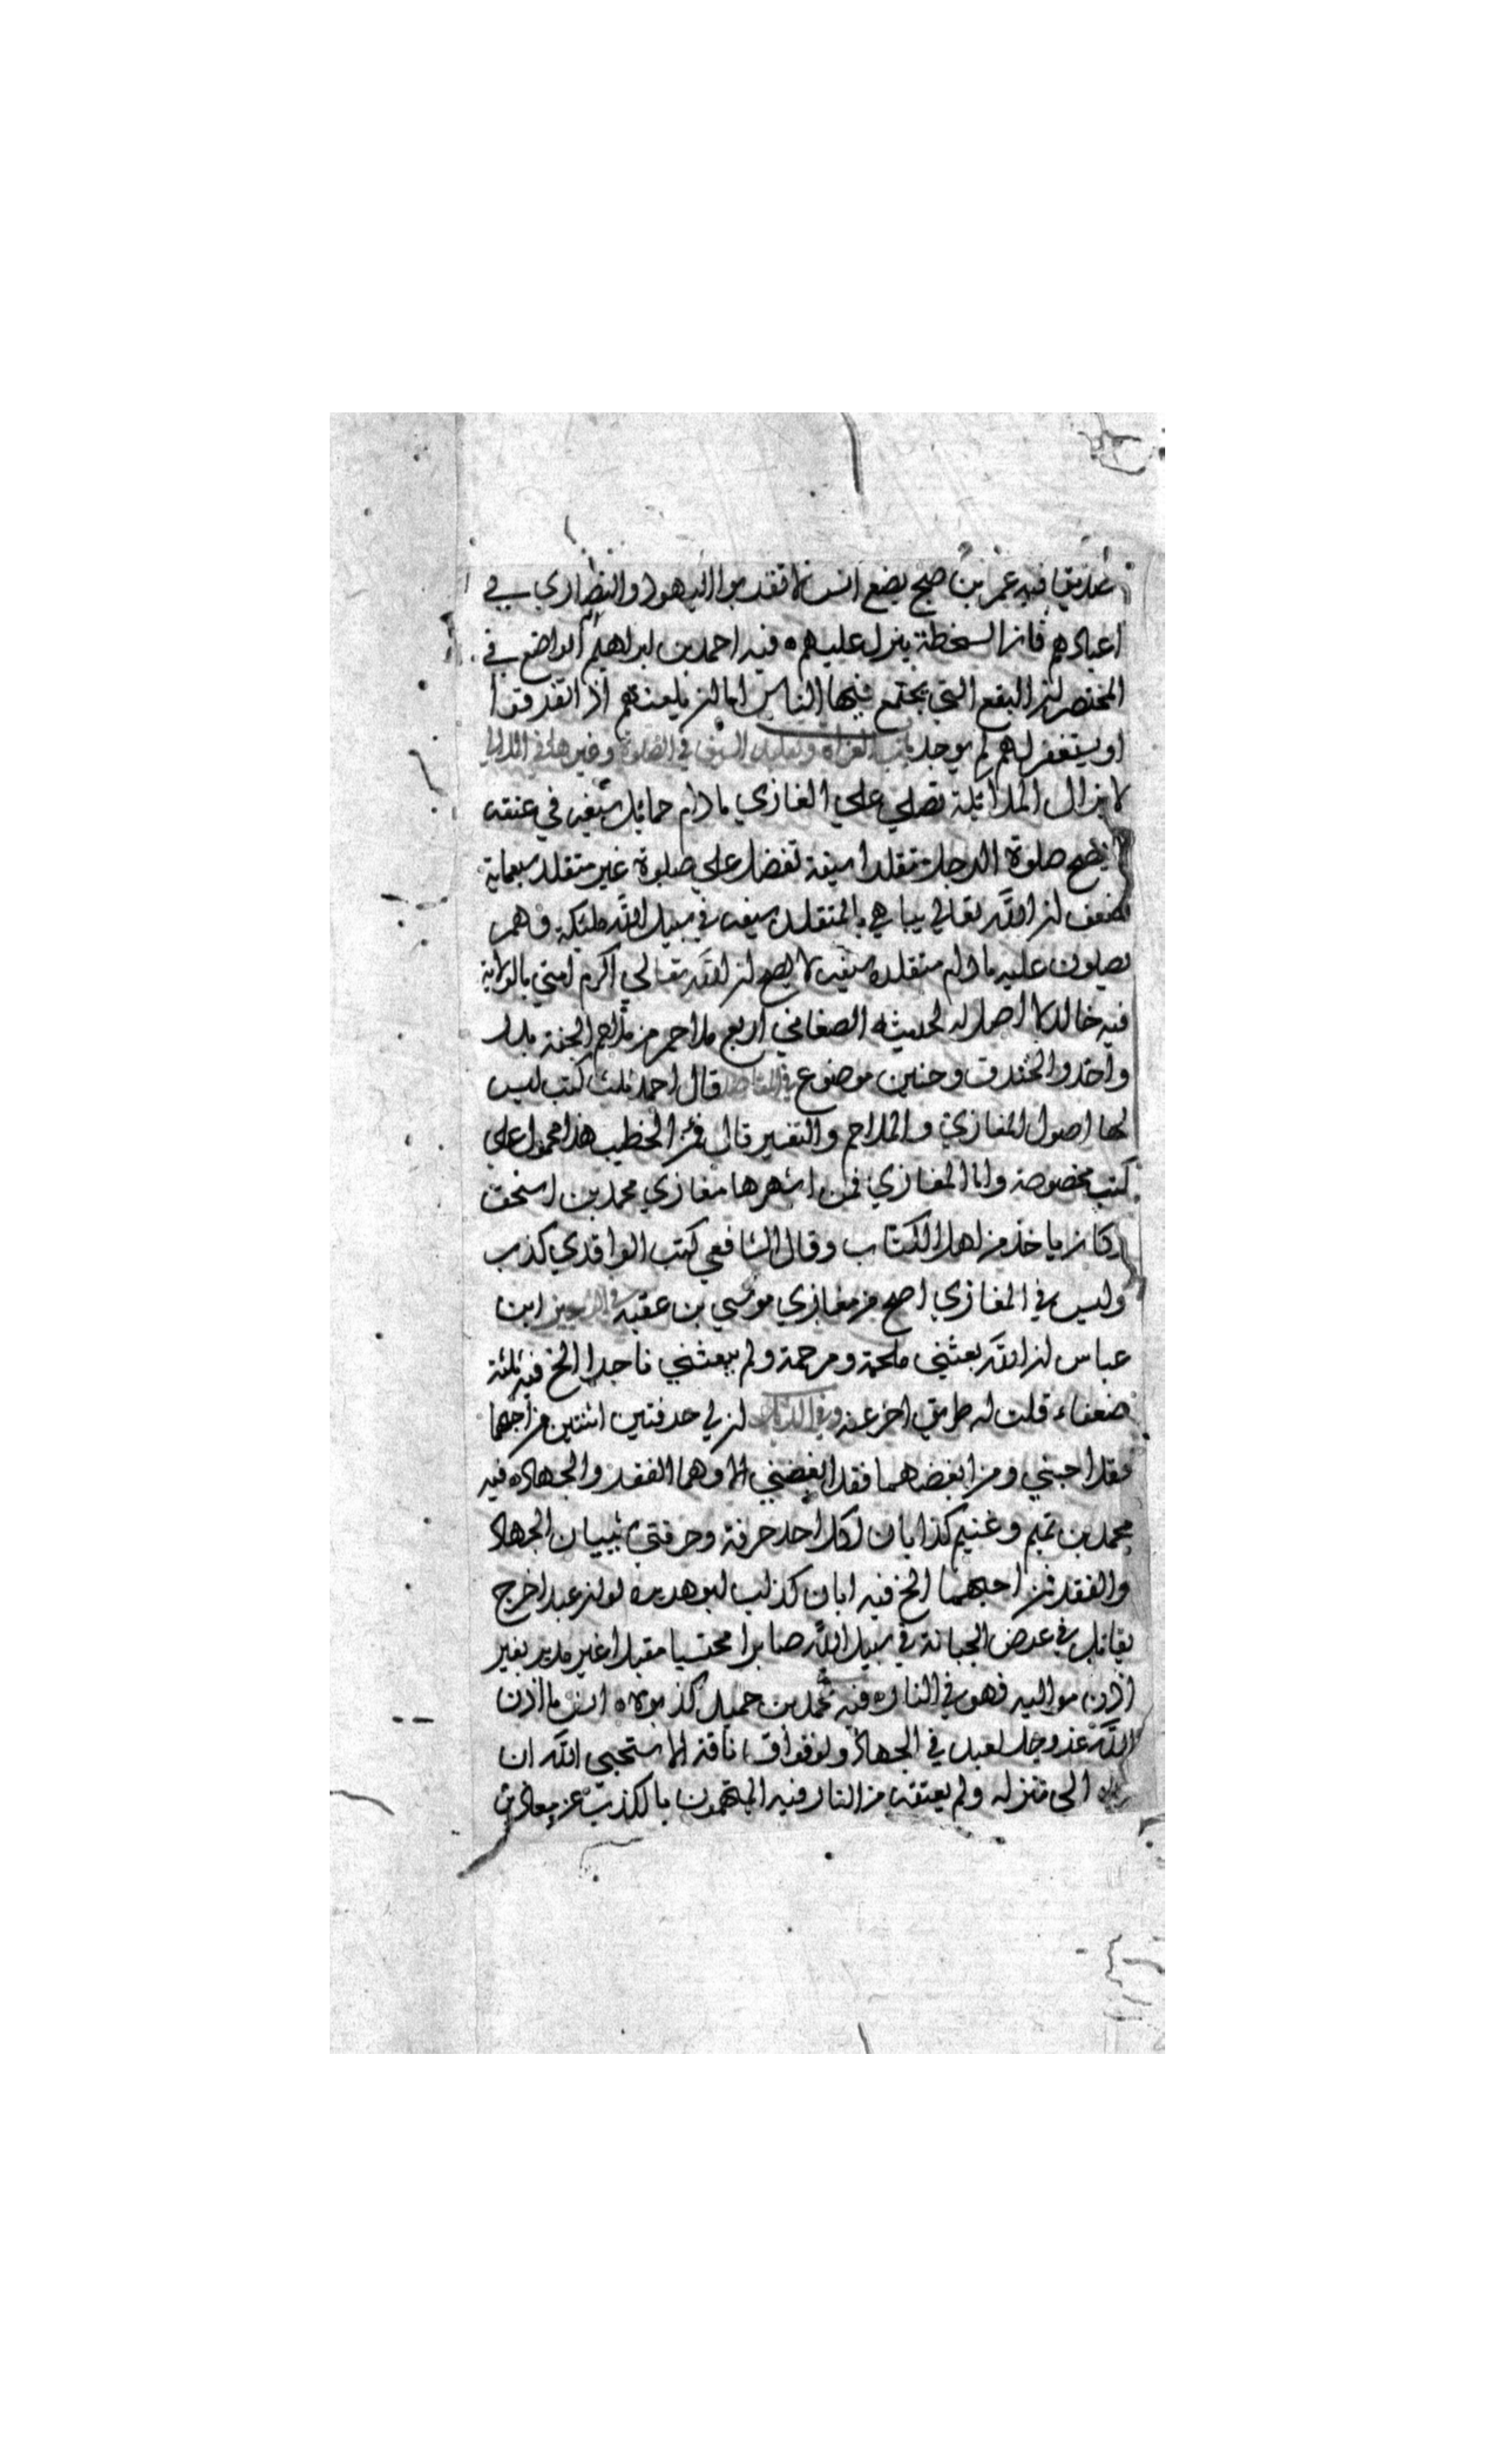 صديقا فيه عمر بن صبح يضع انس لا تقدموا اليهود والنصاري في
اعيادهم فان السخطة ينزل عليهم ه فيه احمد بن ابراهيم الواضع في
المختصر ان البقع التي يجتمع فيها الناس اما ان يلعنهم اذا تفرقوا
او يستغفر لهم لم يوجد باب الغزاة وتقليد السيف في الصلوة وغيرها في اللالي
لا يزال الملائكة تصلي علي الغازي مادام حمايل سيفه في عنقه
لا يصح صلوة الرجل متقلدا سيفه تفضل علي صلوة غير متقلد سبعماية
ضعف ان الله تعالي يباهي بالمتقلد سيفه في سبيل الله ملئكته وهم
يصلون عليه مادام متقلده سيفه لا يصح ان الله تعالي اكرم امتي بالولاية
فيه خالد لا اصل له لحديثه الصغاني اربع ملاحم من ملاحم الجنة بدر
واحد والخندق وحنين موضوع في المقاصد قال احمد ثلث كتب ليس
لها اصول المغازي والملاحم والتفسير قال الخطيب هذا محمول علي
كتب مخصوصة واما المغازي فمن اشهرها مغازي محمد بن اسحق
وكان ياخذ من اهل الكتاب وقال الشافعي كتب الواقدي كذب
وليس في المغازي اصح من مغازي موسي بن عقبه في الوجيز ابن
عباس ان الله بعثني ملحمة ومرحمة ولم يبعثني تاجرا الخ فيه ثلثة
ضعفاء قلت له طريق اخر عنه وفي الذيل ان لي حرفتين اثنتين من احبهما
فقد احبني ومن ابغضهما فقد ابغضني الا وهما الفقر والجهاد ه فيه
محمد بن تميم وغنيم كذابان لكل احد حرفة وحرفتي شيئان الجهاد
والفقر فمن احبهما الخ فيه ابان كذاب ابو هريره لو ان عبدا خرج
يقاتل في عرض الجبانة في سبيل الله صابرا محتسبا مقبلا غير مدبر بغير
اذن مواليه فهو في النار ه فيه محمد بن حميد كذبوه ه انس ما اذن
الله عز وجل لعبد في الجهاد ولو فواق ناقة الا استحيي الله ان
يرده الي منزله ولم يعتقه من النار فيه المتهمون بالكذب عن معاذ بن